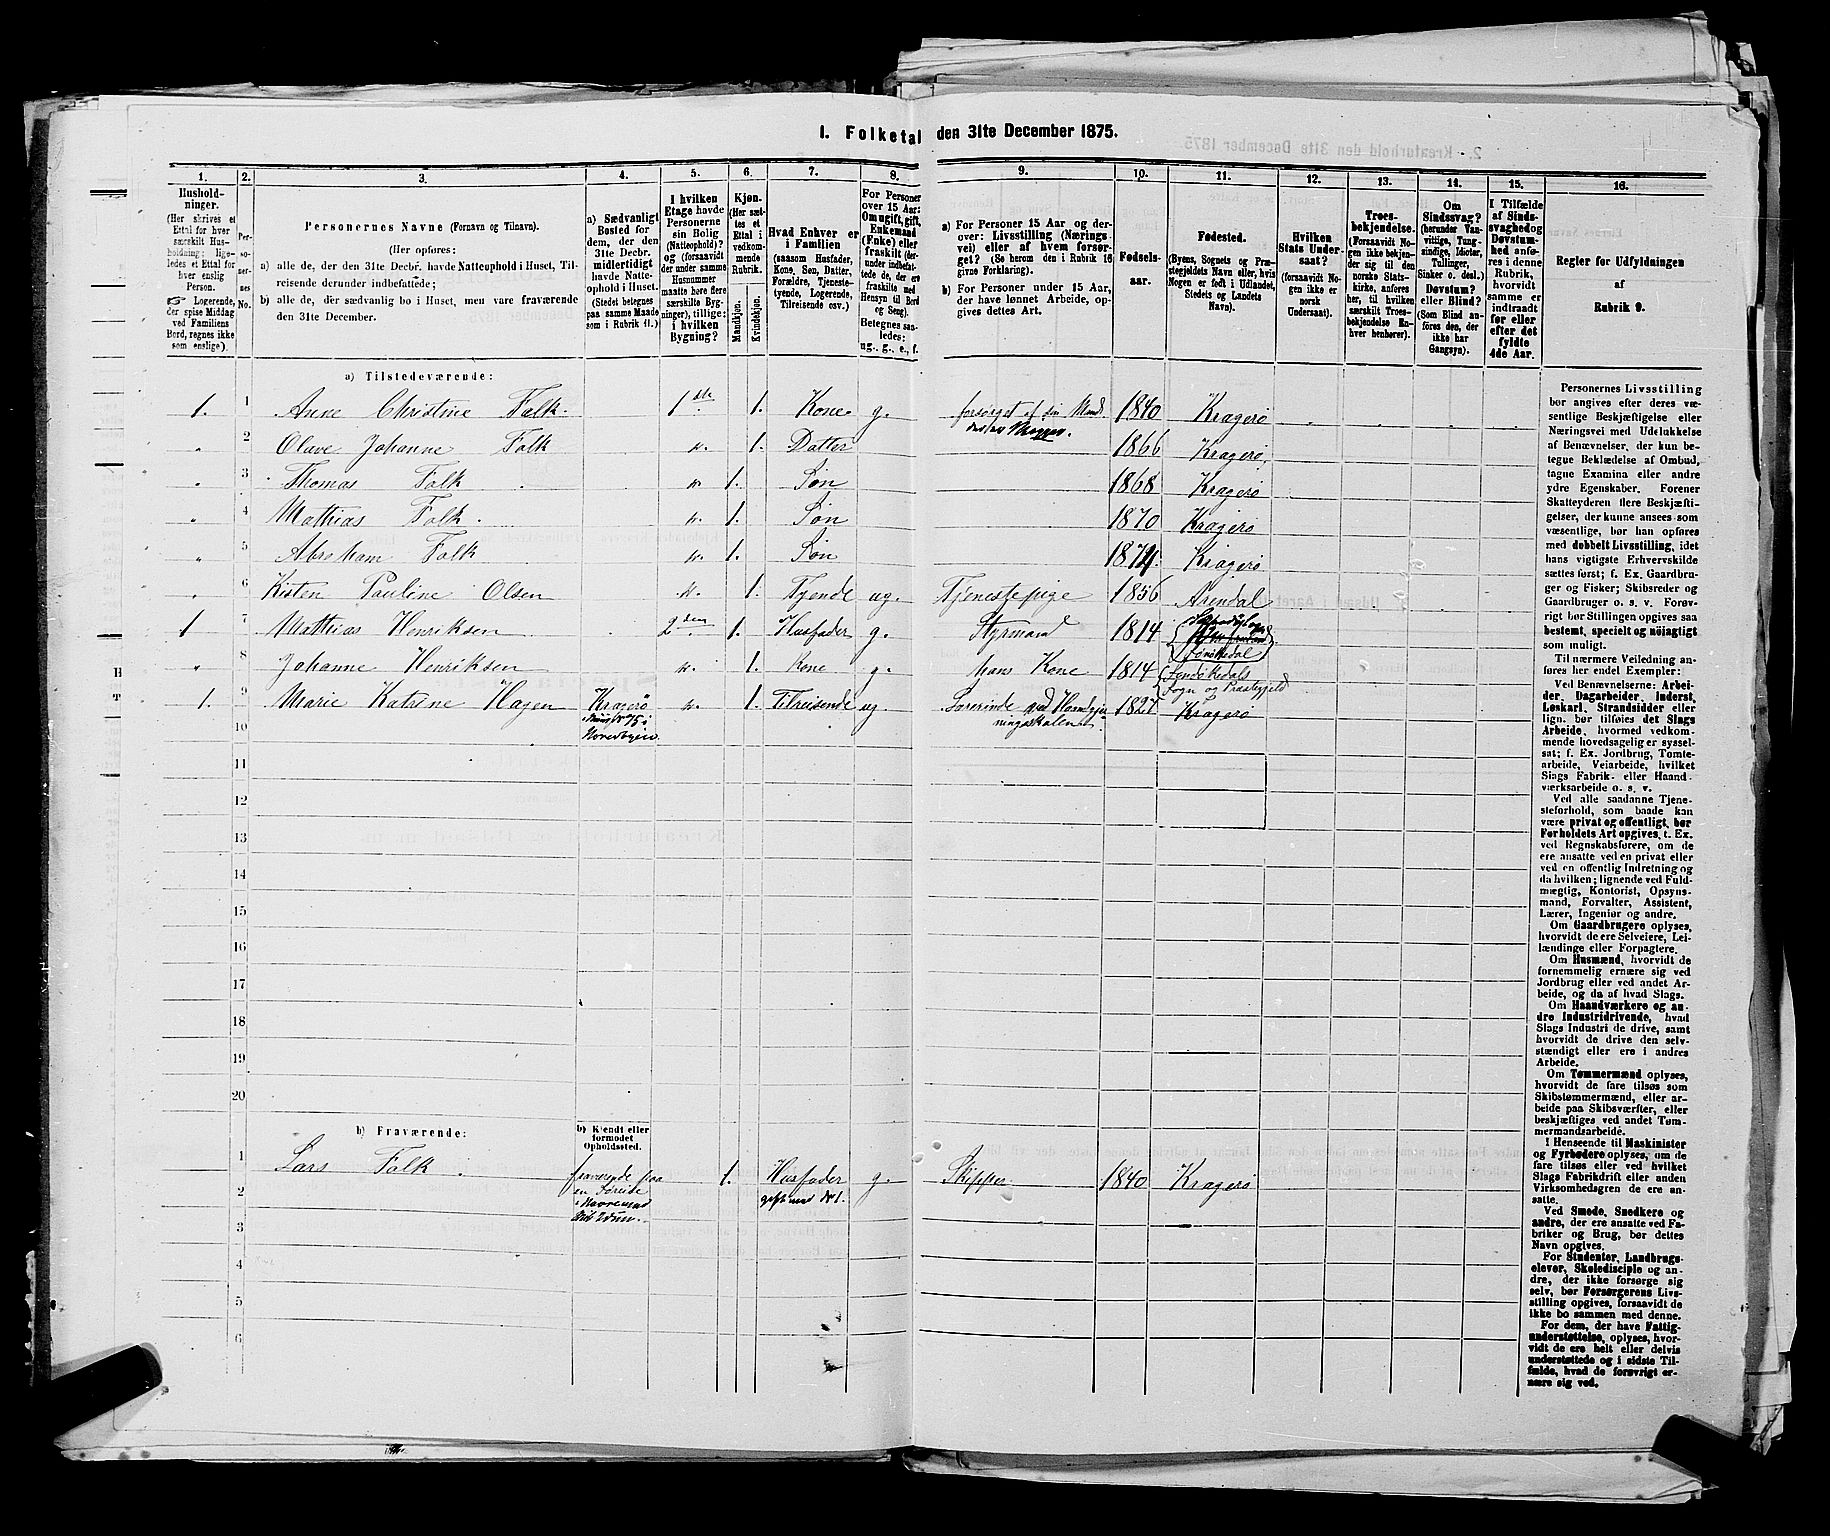 1. Folketal den 31te December 1875.
1.
2.
3.
4.
5.
6.
7.
8.
9.
10.
11.
12.
13.
14.
15.
16.
Hushold-
ninger.
(Her skrives et
Ettal for hver
særskilt Hus-
holdning; lige-
ledes et Ettal for
hver enslig
Person.
☞ Logerende,
der spise Middag
ved Familiens
Bord, regnes ikke
som enslige).
Per-
so-
ner-
nes
No.
Personernes Navne (Fornavn og Tilnavn).
(Her opføres:
a) alle de, der den 31te Decbr. havde Natteophold i Huset, Til-
reisende derunder indbefattede;
b) alle de, der sædvanlig bo i Huset, men vare fraværende
den 31te December.
a) Sædvanligt
Bosted for
dem, der den
31te Decbr.
midlertidigt
havde Natte-
ophold i Huset.
(Stedet betegnes
paa samme Maade
som i Rubrik 11.)
I hvilken
Etage havde
Personerne
sin Bolig
(Natteophold)?
og (forsaavidt
der under samme
Husnummer
maatte høre flere
særskilte Byg-
ninger), tillige:
i hvilken
Bygning?
Kjøn.
(Her sæt-
tes et
Ettal i
vedkom-
mende
Rubrik.
Mandkjøn.
Kvindekjøn.
Hvad Enhver er
i Familien
(saasom Husfader,
Kone, Søn, Datter,
Forældre, Tjeneste-
tyende, Logerende,
Tilreisende osv.)
For Personer
over 15 Aar:
Om ugift, gift,
Enkemand
(Enke) eller
fraskilt (der-
under indbefat-
tede de, der ere
fraskilte med
Hensyn til Bord
og Seng).
Betegnes saa-
ledes:
ug., g., e., f.
a) For Personer 15 Aar og der-
over: Livsstilling (Nærings-
vei) eller af hvem forsør-
get? (Se herom den i Rubrik 16
givne Forklaring).
b) For Personer under 15 Aar,
der have lønnet Arbeide, op-
gives dettes Art.
Fødsels-
aar.
Fødested.
(Byens, Sognets og Præ-
stegjeldets Navn eller, hvis
Nogen er født i Udlandet,
Stedets og Landets
Navn).
Hvilken
Stats Under-
saat?
(forsaavidt No-
gen ikke er
norsk
Undersaat).
Troes-
bekjendelse.
(Forsaavidt No-
gen ikke bekjen-
der sig til den
norske Stats-
kirke, anføres
her, til hvilken
særskilt Troes-
bekjendelse En-
hver henhører).
Om
Sindssvag?
(herunder Van-
vittige, Tung-
sindige, Idioter,
Tullinger,
Sinker o. desl.)
Døvstum?
eller Blind?
(Som Blind an-
føres den, der
ikke har
Gangsyn).
I Tilfælde
af Sinds-
svaghed og
Døvstum-
hed anfø-
res i denne
Rubrik,
hvorvidt
samme er
indtraadt
før eller
efter det
fyldte
4de Aar.
Regler for Udfyldningen
af
Rubrik 9.
a) Tilstedeværende:
1. 1 Anne Christine Falk. 1ste 1. Kone g. forsørget af sin Mand 1840 Kragerø
2 Olave Johanne Falk " 1. Datter 1866 Kragerø
3 Thomas Falk " 1. Søn 1868 Kragerø
4 Mathias Falk " 1. Søn 1870 Kragerø
5 Abraham Falk " 1. Søn 1874 Kragerø
6 Kisten Pauline Olsen " 1. Tjende ug. Tjenestepige 1856 Arendal
1 7 Mathias Henriksen 2den 1. Husfader g. Styrmand 1814
8 Johanne Henriksen " 1. Kone g. hans Kone 1814
Sogn og Præstegjeld
1. 9 Marie Katrine Hagen Kragerø " 1. Tilreisende ug. 1827 Kragerø
10
11
12
13
14
15
16
17
18
19
20
b) Fraværende:
b) Kjendt eller
formodet
Opholdssted.
1 Lars Falk fraværende paa 1. Husfader g. Skipper 1840 Kragerø
2
3
4
5
6
Personernes Livsstilling
bør angives efter deres væ-
sentlige Beskjæftigelse eller
Næringsvei med Udelukkelse
af Benævnelser, der kun be-
tegne Beklædelse af Ombud,
tagne Examina eller andre
ydre Egenskaber. Forener
Skatteyderen flere Beskjæfti-
gelser, der kunne ansees som
væsentlige, bør han opføres
med dobbelt Livsstilling, idet
hans vigtigste Erhvervskilde
sættes først; f. Ex. Gaardbru-
ger og Fisker; Skibsreder og
Gaardbruger o. s. v. Forøv-
rigt bør Stillingen opgives saa
bestemt, specielt og nøiagtigt
som muligt.
Til nærmere Veiledning an-
føres her endel Exempler:
Ved Benævnelserne: Arbei-
der, Dagarbeider, Inderst,
Løskarl, Strandsidder eller
lign. bør tilføies det Slags
Arbeide, hvormed vedkom-
mende hovedsagelig er syssel-
sat; f. Ex. Jordbrug, Tomte-
arbeide, Veiarbeide, hvilket
Slags Fabrik- eller Haand-
værksarbeide o. s. v.
Ved alle saadanne Tjene-
steforhold, som baade kan
være privat og offentligt, bør
Forholdets Art opgives, t. Ex.
ved Regnskabsførere, om de
ere ansatte ved en privat eller
ved en offentlig Indretning og
da hvilken; lignende ved Fuld-
mægtig, Kontorist, Opsyns-
mand, Forvalter, Assistent,
Lærer, Ingeniør og andre.
Om Gaardbrugere oplyses,
hvorvidt de ere Selveiere, Lei-
lændinge eller Forpagtere.
Om Husmænd, hvorvidt de
fornemmelig ernære sig ved
Jordbrug eller ved andet Ar-
beide, og da af hvad Slags.
Om Haandværkere og an-
dre Industridrivende, hvad
Slags Industri de drive, samt
hvorvidt de drive den selv-
stændigt eller ere i andres
Arbeide.
Om Tømmermænd oplyses,
hvorvidt de fare tilsøs som
Skibstømmermænd, eller ar-
beide paa Skibsværfter, eller
beskjæftiges ved andet Tøm-
mermandsarbeide.
I Henseende til Maskinister
og Fyrbødere oplyses, om de
fare tilsøs eller ved hvilket
Slags Fabrikdrift eller anden
Virksomhedsgren de ere an-
satte.
Ved Smede, Snedkere og
andre, der ere ansatte ved Fa-
briker og Brug, bør dettes
Navn opgives.
For Studenter, Landbrugs-
elever, Skoledisciple og an-
dre, der ikke forsørge sig
selv, bør Forsørgerens Livs-
stilling opgives, forsaavidt de
ikke bo sammen med denne.
For dem, der have Fattig-
understøttelse, oplyses, hvor-
vidt de ere helt eller delvis
understøttede og i sidste Til-
fælde, hvad de forøvrigt er-
nære sig ved.